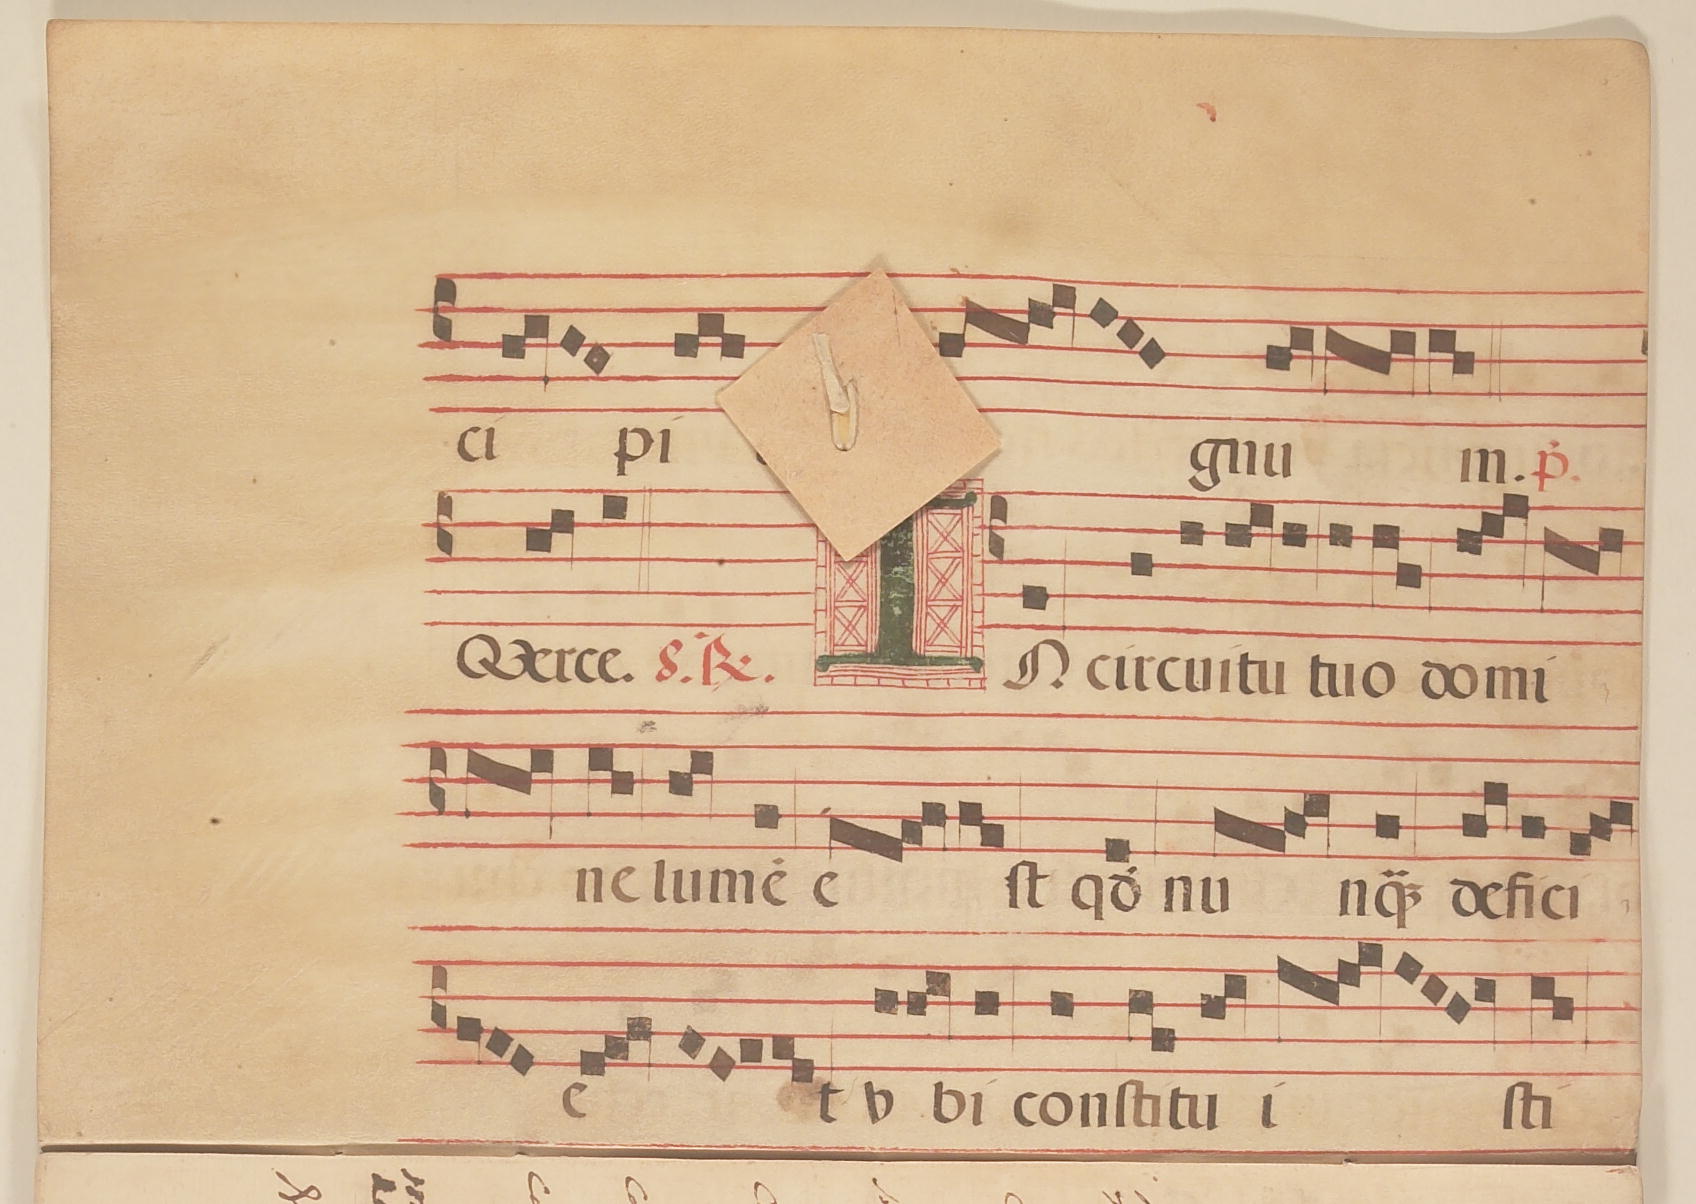 ci pi gnu m. p̄.
Qverce. 8. ℟.
IN circuitu tuo domi
ne lumē e st qd̄ nu nqȝ defici
e t v bi constitu i sti